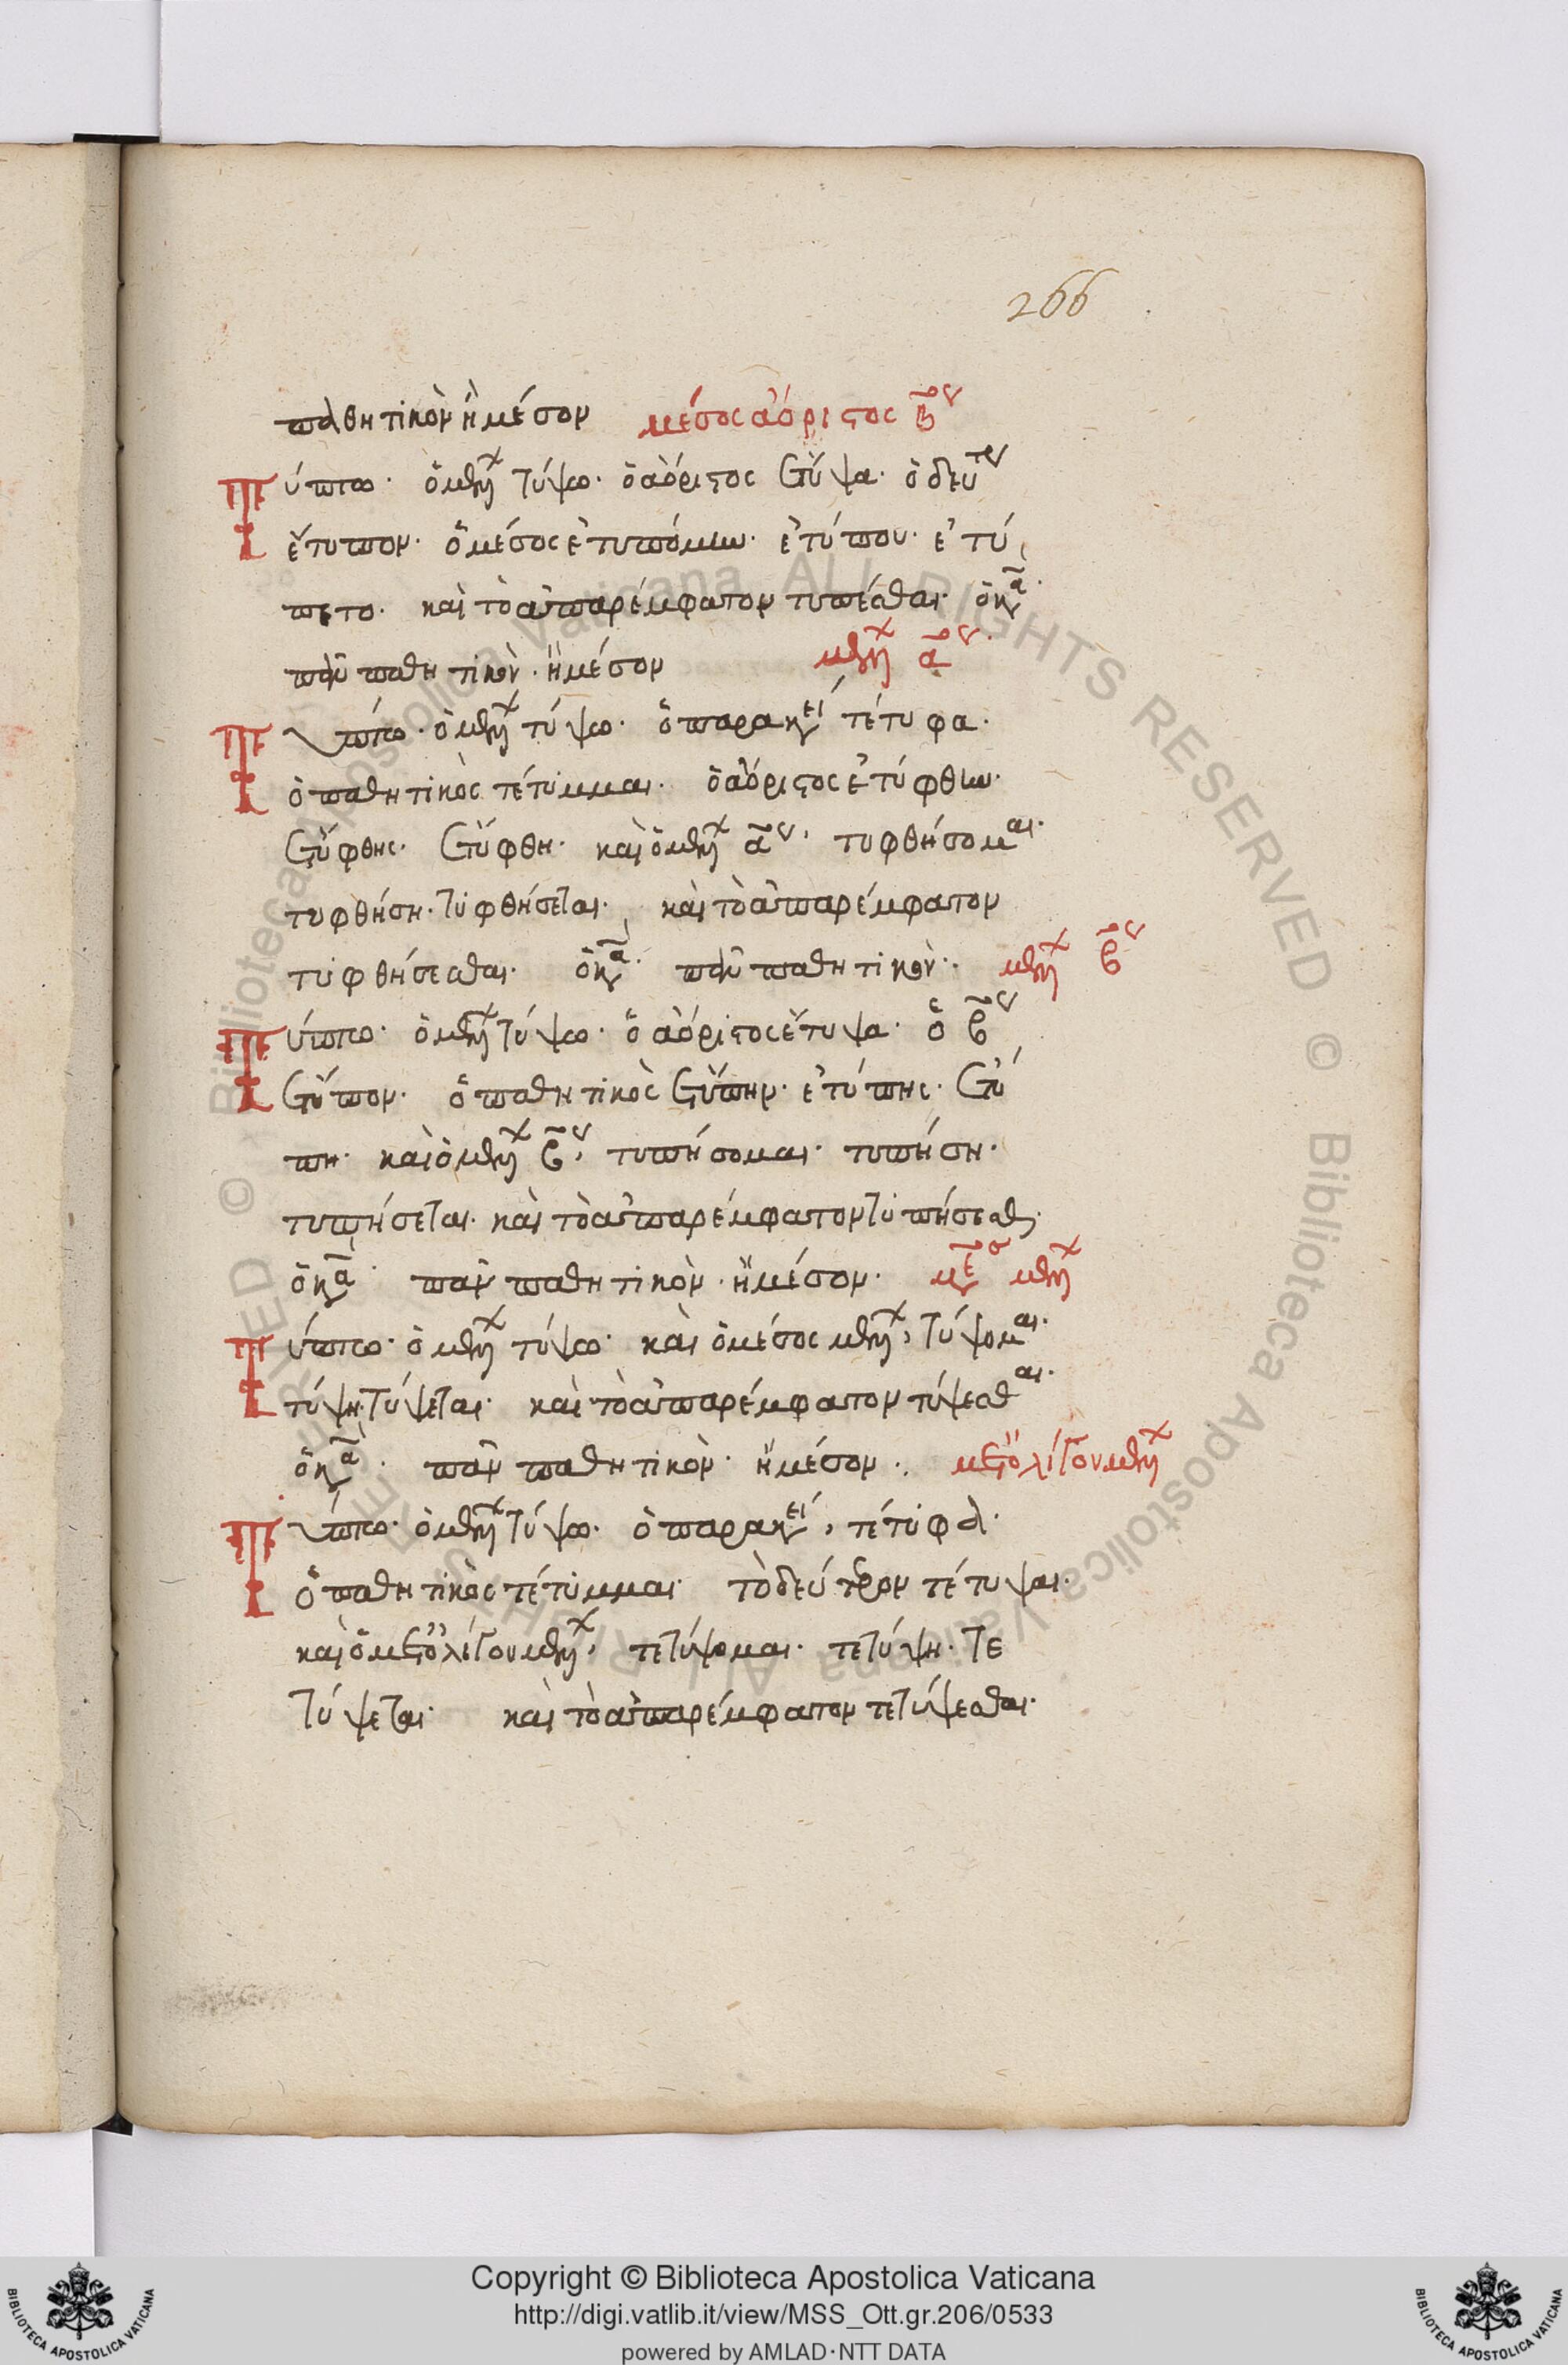 266
παθητικὸν ἢ μέσον μέσος ἀόριστος β̅ο̅ς
Τύπτω· ὁ μέλλων τύψω· ὁ ἀόριστος ἔτυψα· ὁ δεύτερος
ἔτυπον· ὁ μέσος ἐτυπόμην· ἐτύπου· ἐτύ
πετο· καὶ τὸ ἀπαρέμφατον τυπέσθαι·
πᾶν παθητικὸν· ἢ μέσον μέλλων α̅ο̅ς
Τύπτω· ὁ μέλλων τύψω· ὁ παρακείμενος τέτυφα·
ὁ παθητικὸς τέτυμμαι· ὁ ἀόριστος ἐτύφθην·
ἐτύφθης· ἐτύφθη· καὶ ὁ μέλλων α̅ος· τυφθήσομαι·
τυφθήση· τυφθήσεται· καὶ τὸ ἀπαρέμφατον
τυφθήσεσθαι· πᾶν παθητικὸν· μέλλων β̅ο̅ς
Τύπτω· ὁ μέλλων τύψω· ὁ ἀόριστος ἔτυψα· ὁ β̅ος
ἔτυπον· ὁ παθητικὸς ἐτύπην· ἐτύπης· ἐτύ
πη· καὶ ὁ μέλλων β̅ος· τυπήσομαι· τυπήση·
τυπήσεται· καὶ τὸ ἀπαρέμφατον τυπήσεσθαι·
πᾶν παθητικὸν· ἢ μέσον· μέσος μέλλων
Τύπτω· ὁ μέλλων τύψω· καὶ ὁ μέσος μέλλων, τύψομαι·
τύψη· τύψεται· καὶ τὸ ἀπαρέμφατον τύψεσθαι·
πᾶν παθητικὸν· ἢ μέσον· μετ' ὀλίγον μέλλων
Τύπτω· ὁ μέλλων τύψω· ὁ παρακείμενος, τέτυφα·
ὁ παθητικὸς τέτυμμαι· τὸ δεύτερον τέτυψαι·
καὶ ὁ μετ' ὀλίγον μέλλων, τετύψομαι· τετύψη· τε
τύψεται· καὶ τὸ ἀπαρέμφατον τετύψεσθαι·
Copyright © Biblioteca Apostolica Vaticana
http://digi.vatlib.it/view/MSS_Ott.gr.206/0533
powered by AMLAD·NTT DATA